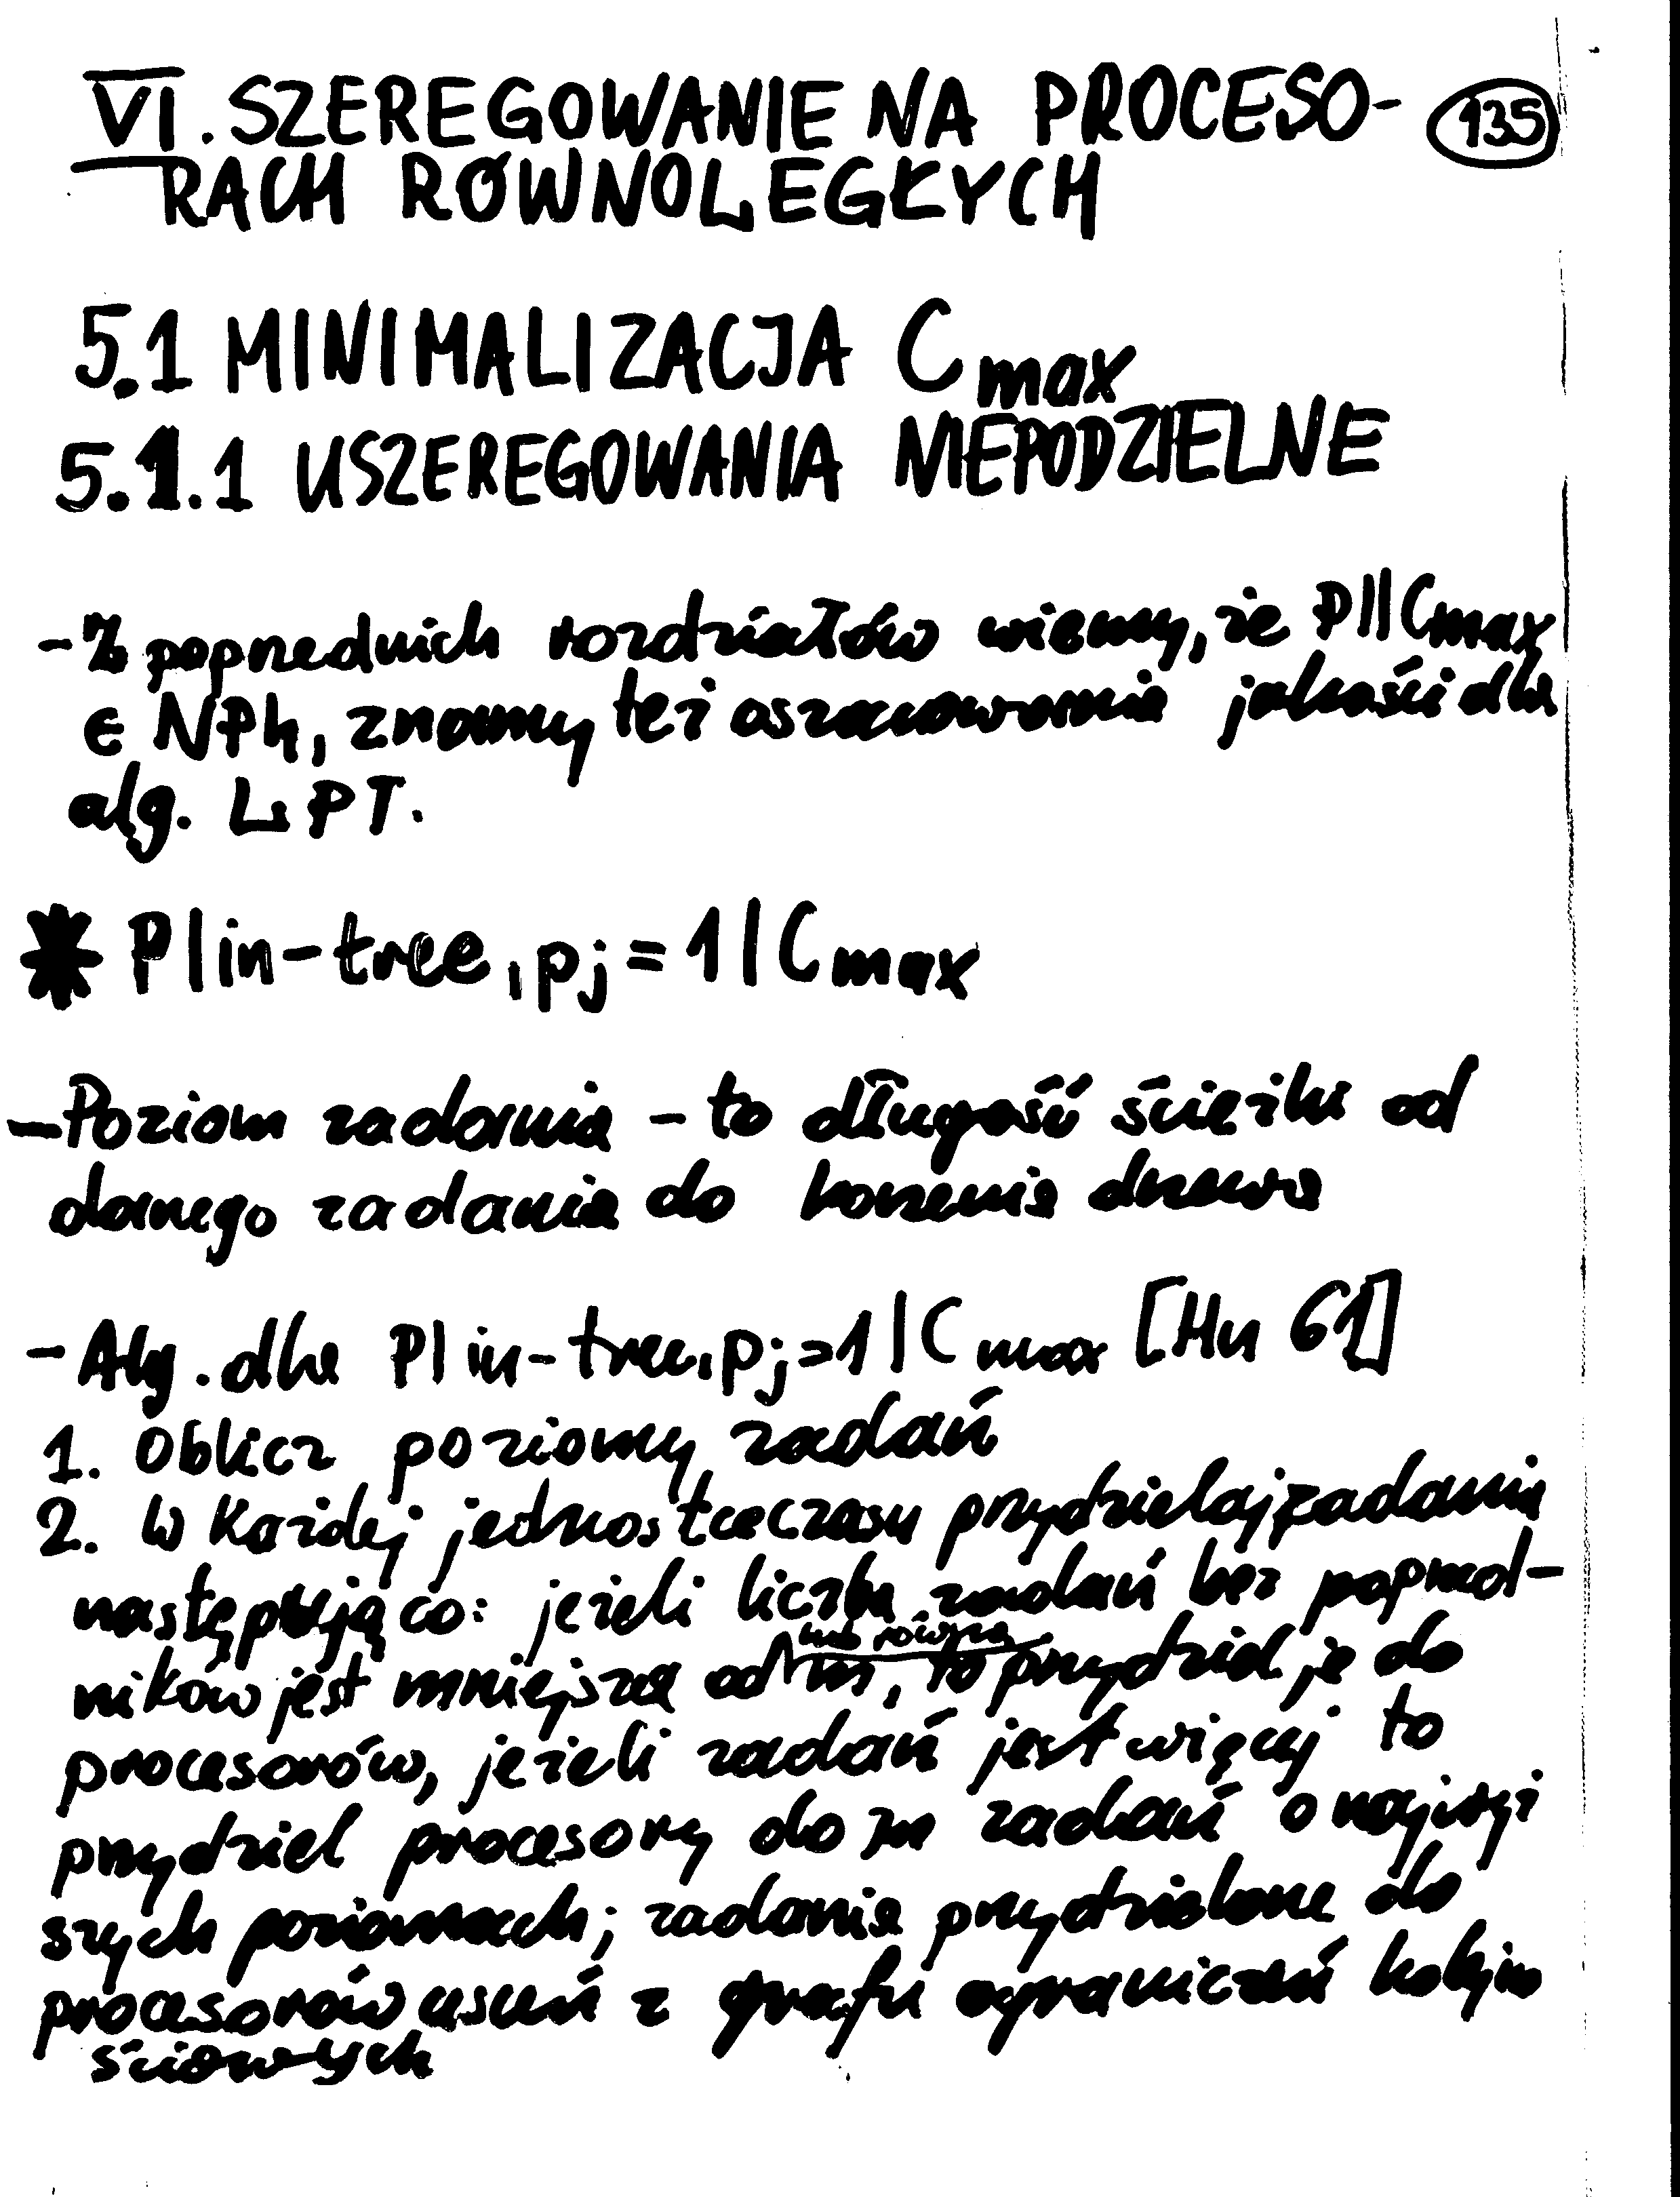 VI. SZEREGOWANIE NA PROCESO-
135
RACH RÓWNOLEGŁYCH
5.1 MINIMALIZACJA Cmax
5.1.1 USZEREGOWANIA NIEPODZIELNE
- Z poprzednich rozdziałów wiemy, że P||Cmax
∈ NPh, znamy też oszacowania jakości dla
alg. LPT.
* P|in-tree, pj=1|Cmax
- Poziom zadania - to długość ścieżki od
danego zadania do korzenia drzewa
- Alg. dla P|in-tree, pj=1|Cmax [Hu 61]
1. Oblicz poziomy zadań
2. W każdej jednostce czasu przydzielaj zadania
następująco: jeżeli liczba zadań bez poprzed-
lub równa
ników jest mniejsza od m, to przydziel je do
procesorów, jeżeli zadań jest więcej to
przydziel procesory do m zadań o najwyż
szych poziomach; zadania przydzielone do
procesorów usuń z grafu ograniczeń kolejno
ściowych